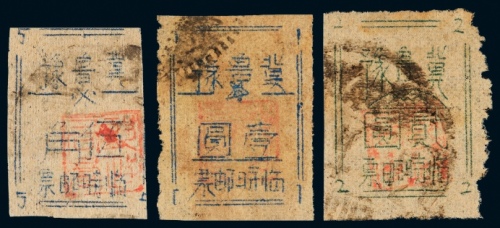 5
冀魯豫
伍角
臨時郵票
5
1
冀魯豫
壹圓
臨時郵票
1
1
2
2
冀魯豫
貳圓
臨時郵票
2
2